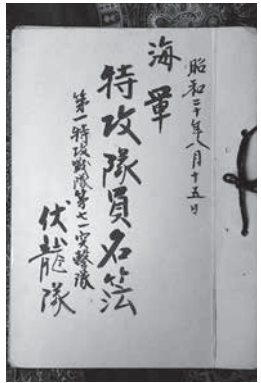 昭和二十年八月十五日
海軍
特攻隊員名簿
第一特攻戦隊第七一突撃隊
伏龍隊